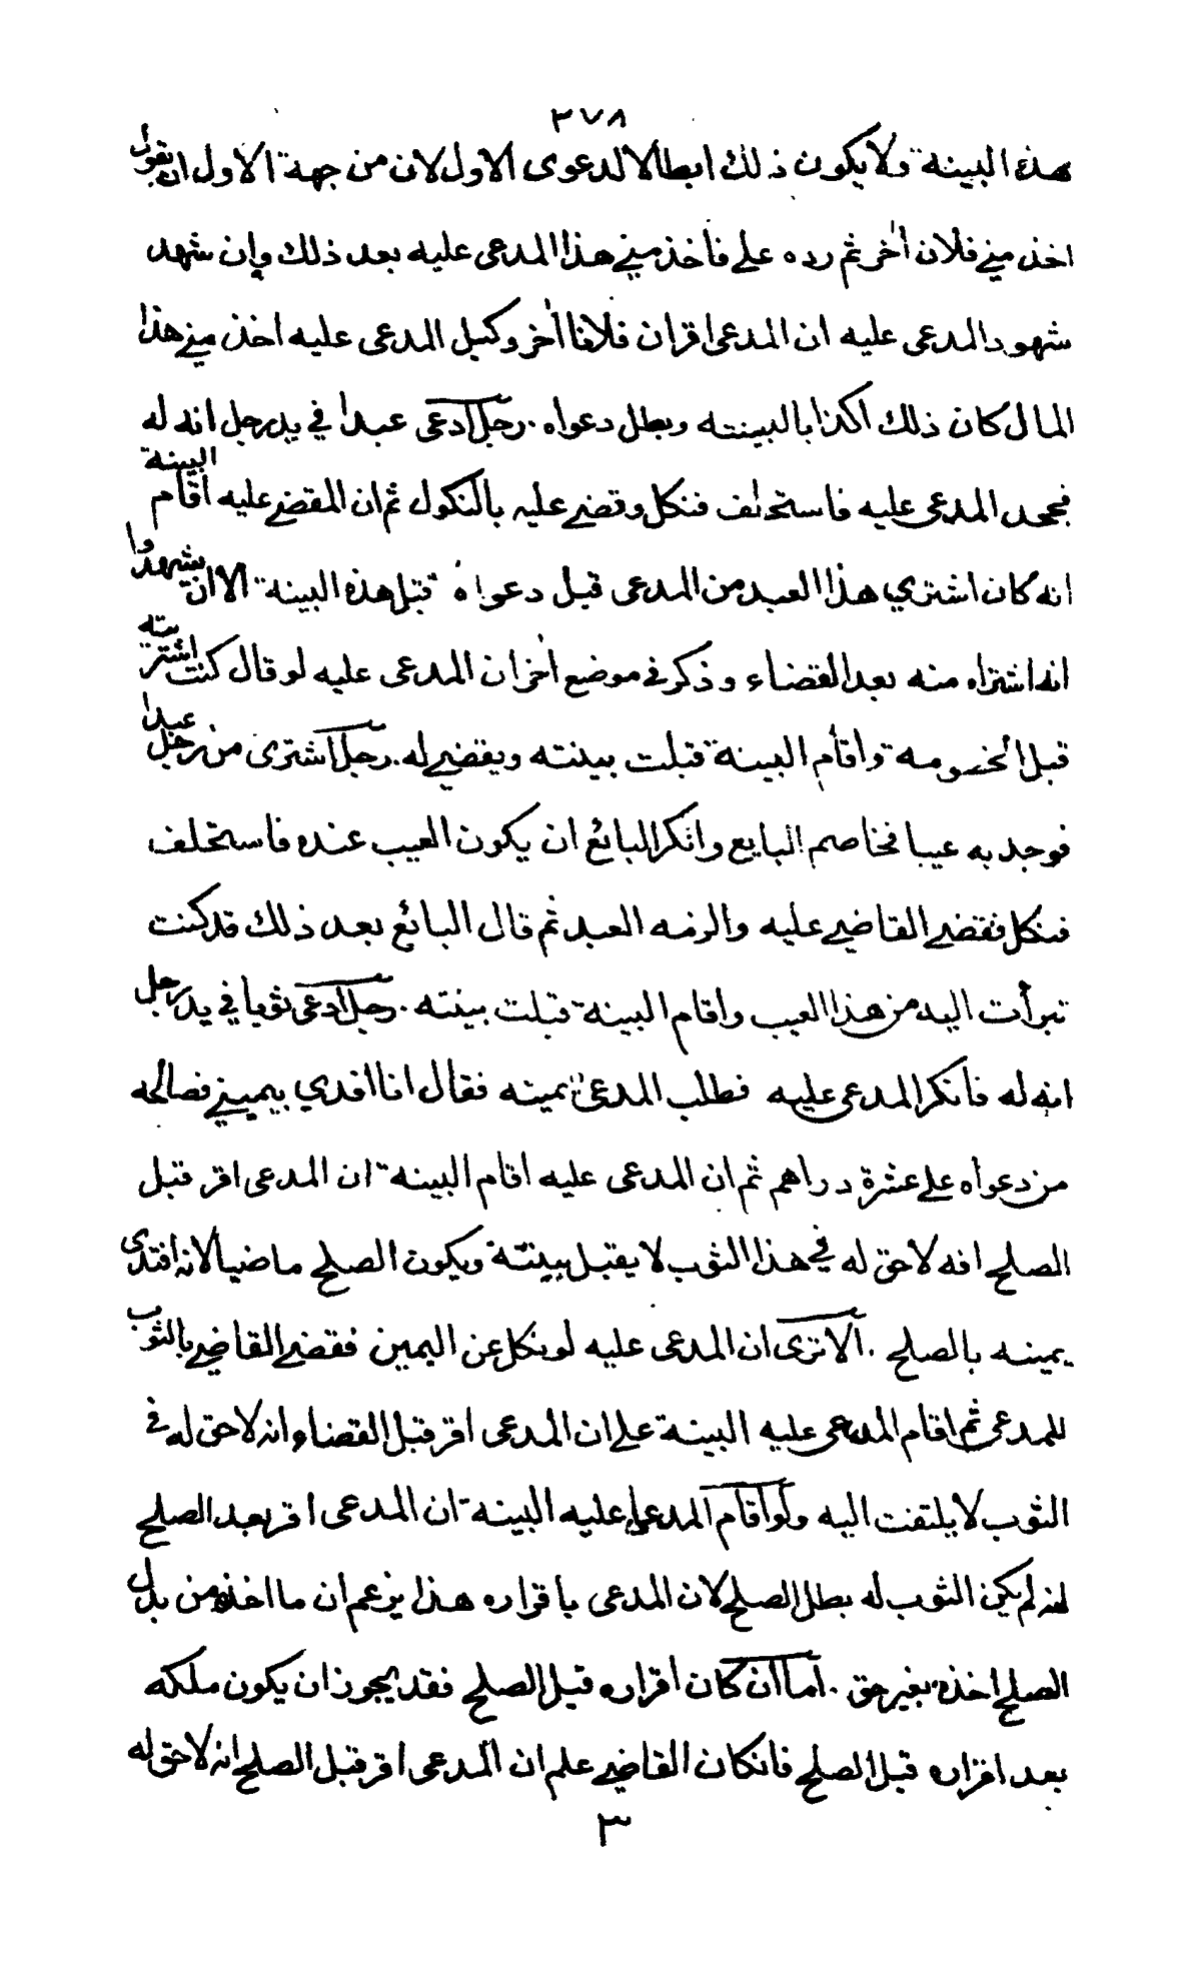 ٣٧٨
هذه البينة ولا يكون ذلك ابطالا لدعوى الاول لان من جهة الاول ان يقول
اخذ مني فلان اٰخر ثم رده علي فاخذ مني هذا المدعى عليه بعد ذلك وإن شهد
شهود المدعى عليه ان المدعى اقر ان فلانا اٰخر وكيل المدعى عليه اخذ مني هذا
المال كان ذلك اكذابا لبينته وبطل دعواه . رجل ادعى عبدا في يد رجل انه له
فجحد المدعى عليه فاستحلف فنكل وقضى عليه بالنكول ثم ان المقضي عليه اقام البينة
انه كان اشتري هذا العبد من المدعى قبل دعواه تقبل هذه البينة الا ان يشهدوا
انه اشتراه منه بعد القضاء وذكر في موضع اٰخر ان المدعى عليه لو قال كنت اشتريته
قبل الخصومة واقام البينة قبلت بينته ويقضي له . رجل اشترى من رجل عبدا
فوجد به عيبا فخاصم البايع وانكر البائع ان يكون العيب عنده فاستحلف
فنكل فقضى القاضي عليه والزمه العبد ثم قال البائع بعد ذلك قد كنت
تبرأت اليه من هذا العيب واقام البينة قبلت بينته . رجل ادعى ثوبا في يد رجل
انه له فانكر المدعى عليه فطلب المدعى يمينه فقال انا افدي بيميني فصالحه
من دعواه على عشرة دراهم ثم ان المدعى عليه اقام البينة ان المدعى اقر قبل
الصلح انه لا حق له في هذا الثوب لا يقبل بينته ويكون الصلح ماضيا لانه افتدى
يمينه بالصلح . الا ترى ان المدعى عليه لو نكل عن اليمين فقضى القاضي بالثوب
للمدعى ثم اقام المدعى عليه البينة على ان المدعى اقر قبل القضاء انه لا حق له في
الثوب لا يلتفت اليه ولو اقام المدعى عليه البينة ان المدعى اقر بعد الصلح
انه لم يكن الثوب له بطل الصلح لان المدعى باقراره هذا يزعم ان ما اخذه من بدل
الصلح اخذه بغير حق . اما ان كان اقراره قبل الصلح فقد يجوز ان يكون ملكه
بعد اقراره قبل الصلح فانكان القاضي علم ان المدعى اقر قبل الصلح انه لا حق له
٣